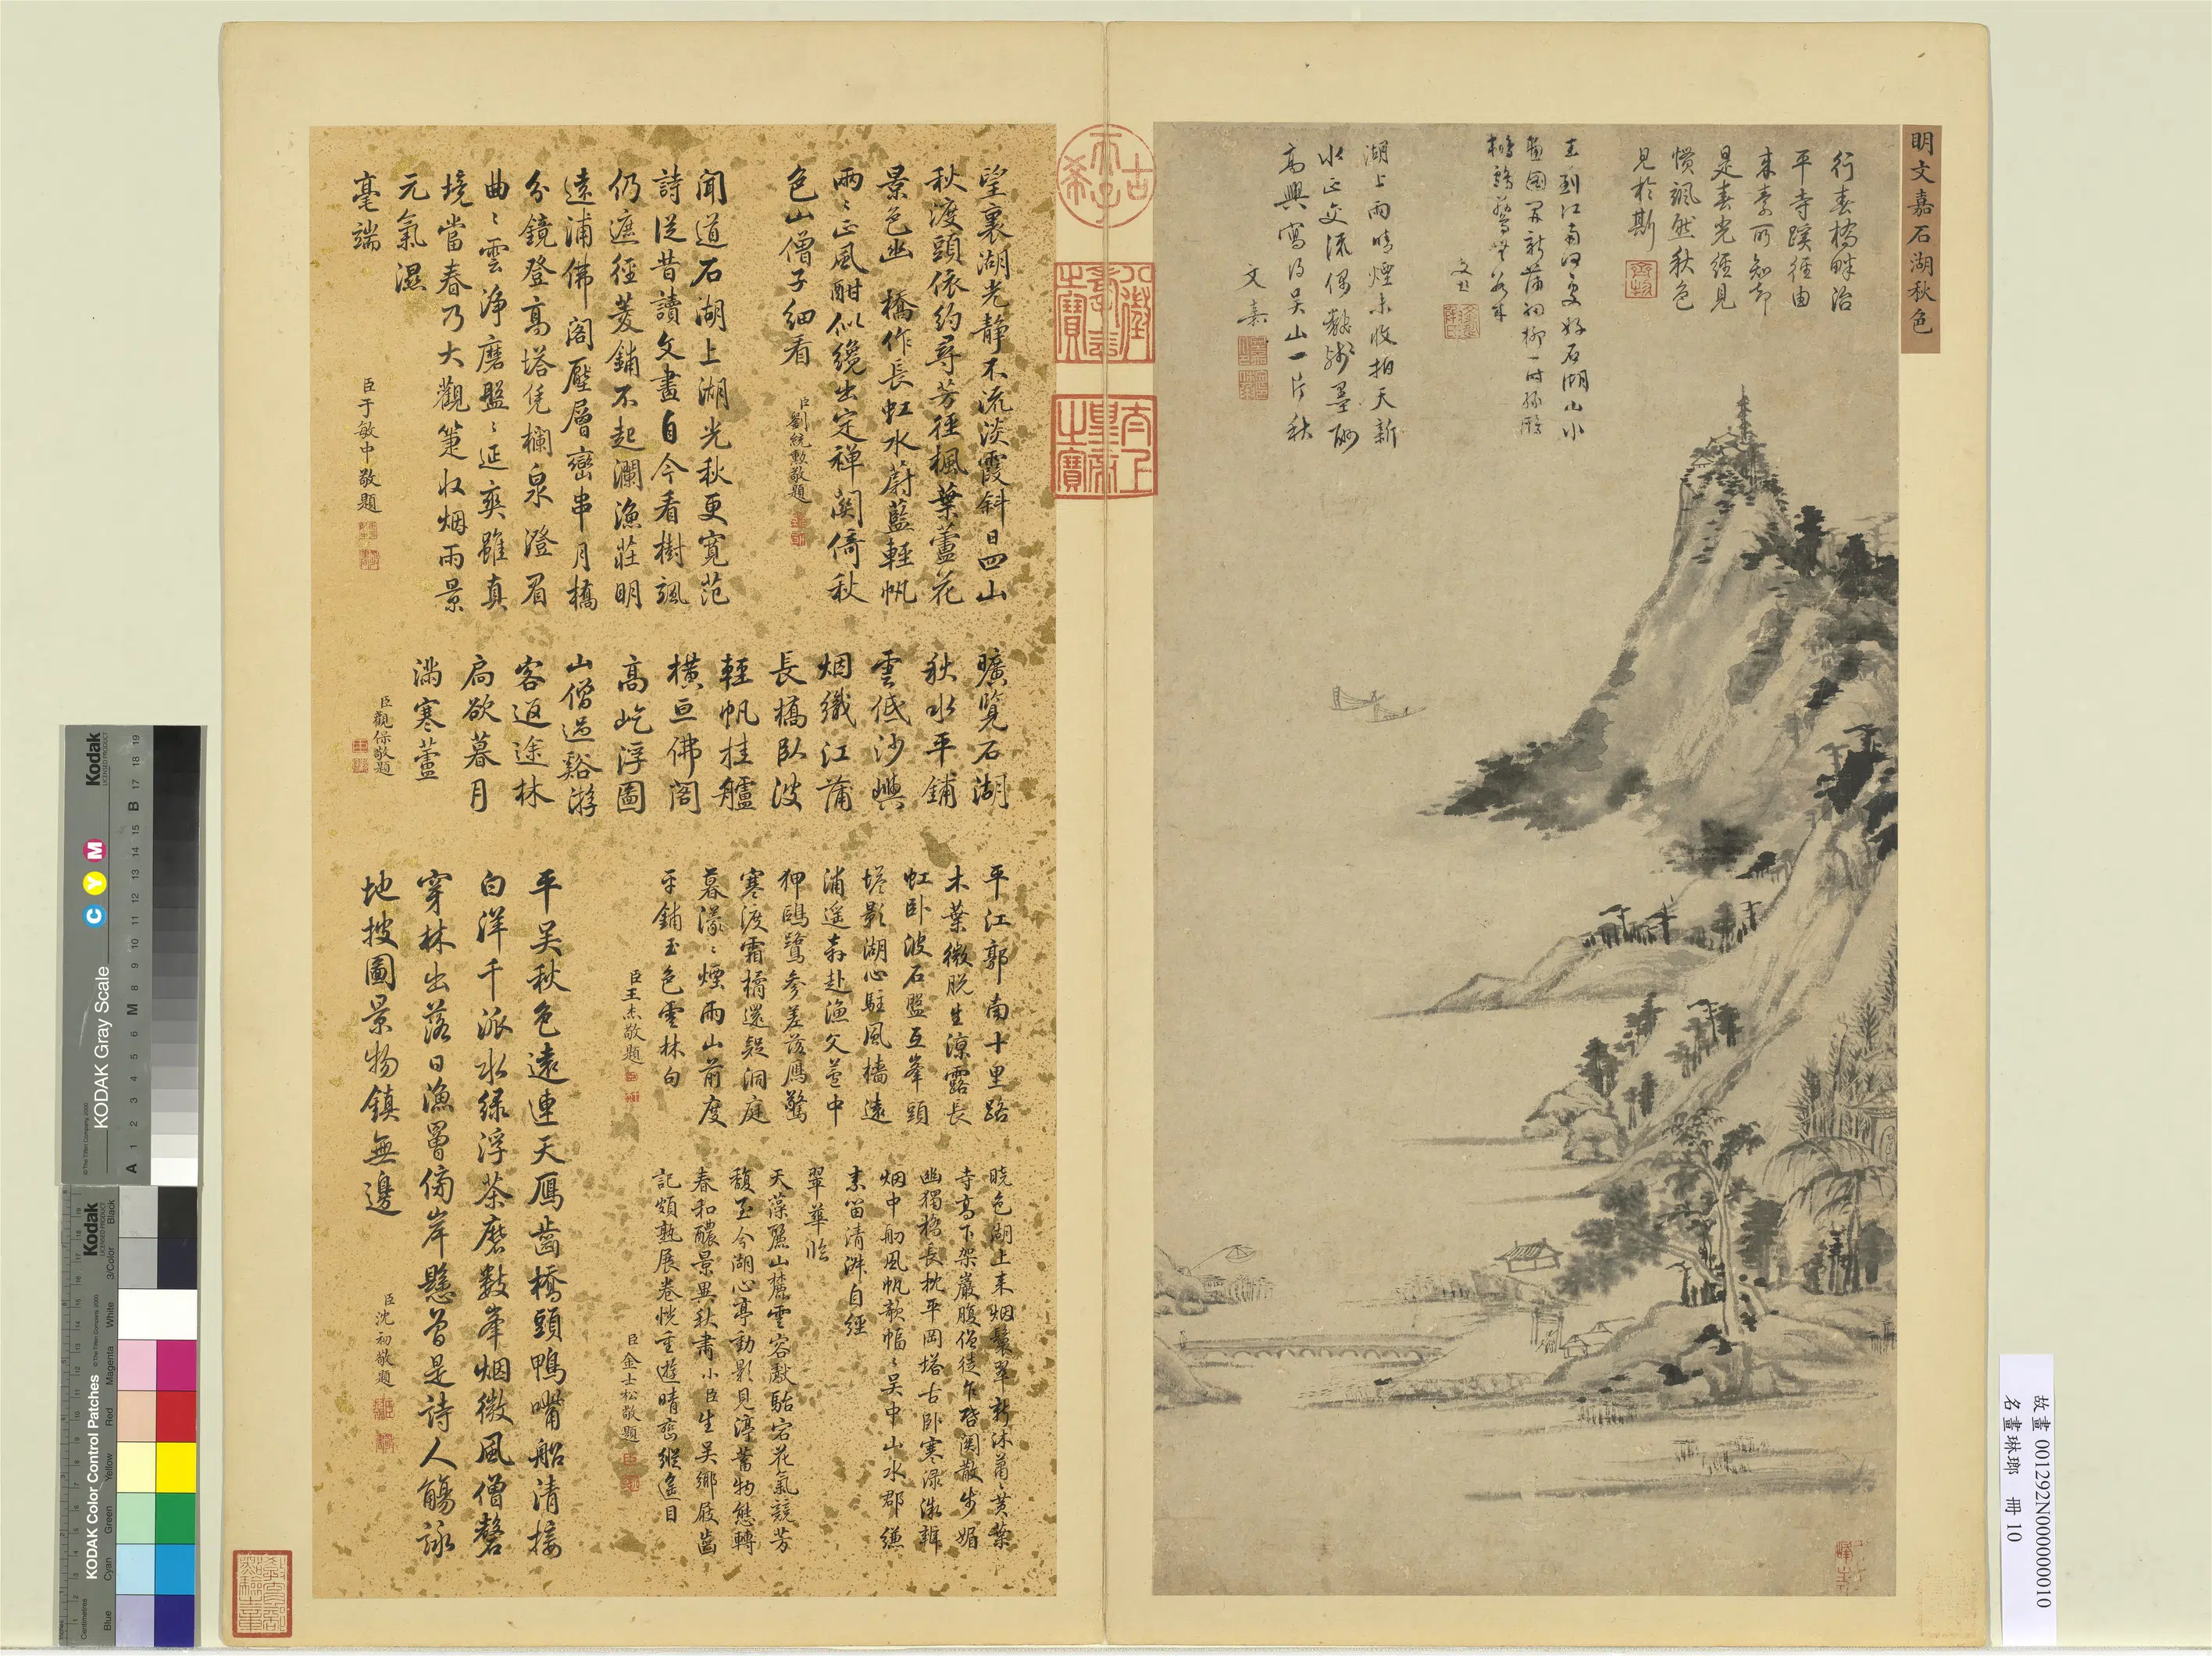 明文嘉石湖秋色
行春橋畔治
平寺蹊徑由
來素所知却
是春光經見
慣飄然秋色
見於斯
湖上雨晴煙未收拍天新
水正交流偶
高興寫得吴山一片秋
文嘉
古希天子
八徵耄念之寶
太上皇帝之寶
望裏湖光静不流淡霞斜日四山
秋渡頭依約尋芳徑楓葉蘆花
景色幽 橋作長虹水蔚藍輕帆
兩〻正風酣似纔出定禅關倚秋
色山僧子細看
臣劉統勲敬題
聞道石湖上湖光秋更寬范
詩従昔讀文畫自今看樹颯
仍遮徑菱鋪不起瀾漁莊明
遠浦佛閣壓層巒串月橋
分鏡登高塔凭欄泉澄眉
曲〻雲浄磨盤〻延爽雖真
境當春乃大觀筆收烟雨景
元氣濕
毫端
臣于敏中敬題
曠覽石湖
秋水平鋪
雲低沙嶼
烟織江蒲
長橋臥波
輕帆挂艫
横亘佛閣
高屹浮圖
山僧過谿游
客返途林
扃欲暮月
滿寒蘆
臣觀保敬題
平江郭南十里路
木葉微脱生涼露長
虹卧波石盤互峯頭
塔影湖心駐風檣遠
浦遥奔赴漁父菴中
狎鷗鷺參差落鴈驚
寒渡霜橘還疑洞庭
暮濛〻煙雨山前度
平鋪玉色雲林句
臣王杰敬題
曉色湖上来烟鬟翠新沐蕭〻黄葉
寺高下架巖腹僧徒乍啓関散步媚
幽獨橋長枕平岡塔古卧寒渌漁艇
烟中舠風帆欹幅〻吴中山水郡縑
素留清淑自經
翠華臨
天藻麗山麓雲容獻駘宕花氣競芳
馥至今湖心亭動影見渟蓄物態轉
春和醲景異秋肅小臣生吴鄉屐齒
記頗熟展卷恍重遊晴巒縱遙目
臣金士松敬題
平吴秋色遠連天鴈齒橋頭鴨嘴船清接
白洋千派水緑浮茶磨數峯烟微風僧磬
穿林出落日漁罾傍岸懸曽是詩人觴詠
地披圖景物鎮無邊
臣沈初敬題
故畫 001292N000000010
名畫琳瑯 冊 10
Kodak
LICENSED PRODUCT
KODAK Gray Scale
C Y M
A 1 2 3 4 5 6 M 8 9 10 11 12 13 14 15 B 17 18 19
© The Tiffen Company, 2000
Kodak
LICENSED PRODUCT
KODAK Color Control Patches
© The Tiffen Company, 2000
Blue Cyan Green Yellow Red Magenta White 3/Color Black
Centimetres